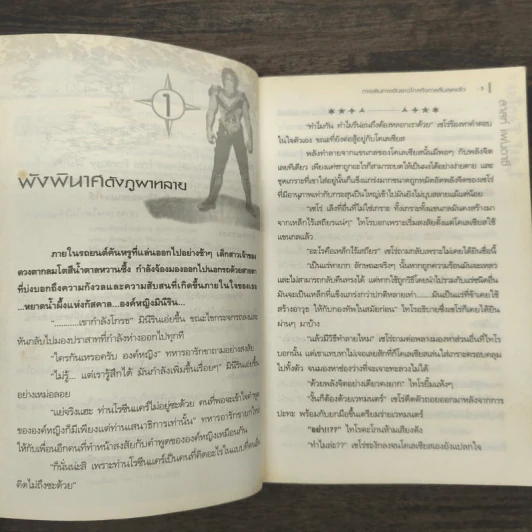 1
พังพินาศดังภูผาทลาย
ภายในรถยนต์คันหรูที่แล่นออกไปอย่างช้าๆ เด็กสาวเจ้าของ
ดวงตากลมโตสีน้ำตาลหวานซึ้ง กำลังจ้องมองออกไปนอกรถด้วยสายตา
ที่บ่งบอกถึงความกังวลและความสับสนที่เกิดขึ้นภายในใจของเธอ
...หยาดน้ำผึ้งแห่งกัสคาล...องค์หญิงมินิริน...
"............เขากำลังโกรธ" มินิรินเอ่ยขึ้น ขณะไขกระจกรถลงและ
หันกลับไปมองปราสาทที่กำลังห่างออกไปทุกที
"ใครกันเหรอครับ องค์หญิง" ทหารอารักขาถามอย่างสงสัย
"ไม่รู้... แต่เรารู้สึกได้ มันกำลังเพิ่มขึ้นเรื่อยๆ" มินิรินเอ่ยขึ้น
อย่างเหม่อลอย
"แย่จริงแฮะ ท่านโรซีนแดร์ไม่อยู่ซะด้วย คนที่พอจะเข้าใจคำพูด
ขององค์หญิงก็มีเพียงแต่ท่านเสนาธิการเท่านั้น" ทหารอารักขานายหนึ่ง
ให้กับเพื่อนอีกคนที่ทำหน้าสงสัยกับคำพูดขององค์หญิงเหมือนกัน
"ก็นั่นน่ะสิ เพราะท่านโรซีนแดร์เป็นคนที่คิดอะไรในแบบที่คน
คิดไม่ถึงซะด้วย"
"ทำไมกัน ทำไมรีน่อนถึงต้องหลอกเราด้วย" เซโร่ร้องหาคำตอบ
ในใจตัวเอง ขณะที่ยังต่อสู้อยู่กับโคเลเซียส
พลังทำลายจากแขนกลของโคลเซียสนั้นมีพอๆ กับพลังจิต
เลยทีเดียว เพียงแค่เขาถูกอะไรก็สามารถบดให้เป็นผงได้อย่างง่ายดาย และ
ชุดเกราะที่เขาใส่อยู่นั้นก็แข็งแกร่งมากขนาดถูกหมัดอัดพลังจิตของเซโร่
ที่มีอานุภาพเท่ากับกระสุนปืนใหญ่เข้าไปมันยังไม่บุบสลายแม้แต่น้อย
"เซโร่ เล็งที่อื่นที่ไม่ใช่เกราะ ทั้งเกราะทั้งแขนกลมันคงสร้างมา
จากเหล็กไร้เสถียรแน่ๆ" ไทโรบอกเพราะเริ่มสงสัยตั้งแต่โคเลเซียสใช้
แขนกลแล้ว
"อะไรคือเหล็กไร้เสถียร" เซโร่ถามกลับเพราะไม่เคยได้ยินชื่อนี้
"เป็นแร่หายาก ลักษณะจริงๆ นั้นหากถูกความร้อนมันจะเหลว
และไม่สามารถกลับคืนทรงได้ แต่หากใช้ถูกวิธีโดยนำไปรวมกับแร่ชนิดอื่น
มันจะเป็นเหล็กที่แข็งแกร่งกว่าปกติหลายเท่า......มันเป็นแร่ที่ข้าเคยใช้
สร้างอาวุธ ให้กับกองทัพในสมัยก่อน" ไทโรอธิบายซึ่งเซโร่ก็เคยได้ยิน
ผ่านๆ มาบ้าง
"แล้วมีวิธีทำลายไหม" เซโร่ถามต่อพลางมองหาส่วนอื่นที่ไทโร
บอกนั้น แต่เขาแทบหาไม่เจอเลยสักที่ที่โคเลเซียสเล่นใส่เกราะครอบคลุม
ไปทั้งตัว จนมองหาช่องว่างที่จะเจาะทะลวงไม่ได้
"ด้วยพลังจิตอย่างเดียวคงยาก" ไทโรยิ้มแห้งๆ
"งั้นก็ต้องด้วยเวทมนตร์" เซโร่ดีดตัวถอยออกมาหลังจากการ
ปะทะ พร้อมกับยกมือขึ้นเตรียมร่ายเวทมนตร์
"อย่า!??" ไทโรตะโกนห้ามเสียงดัง
"ทำไมล่ะ??" เซโร่ชะงักลงจนโคเลเซียสมองยังแปลกใจ